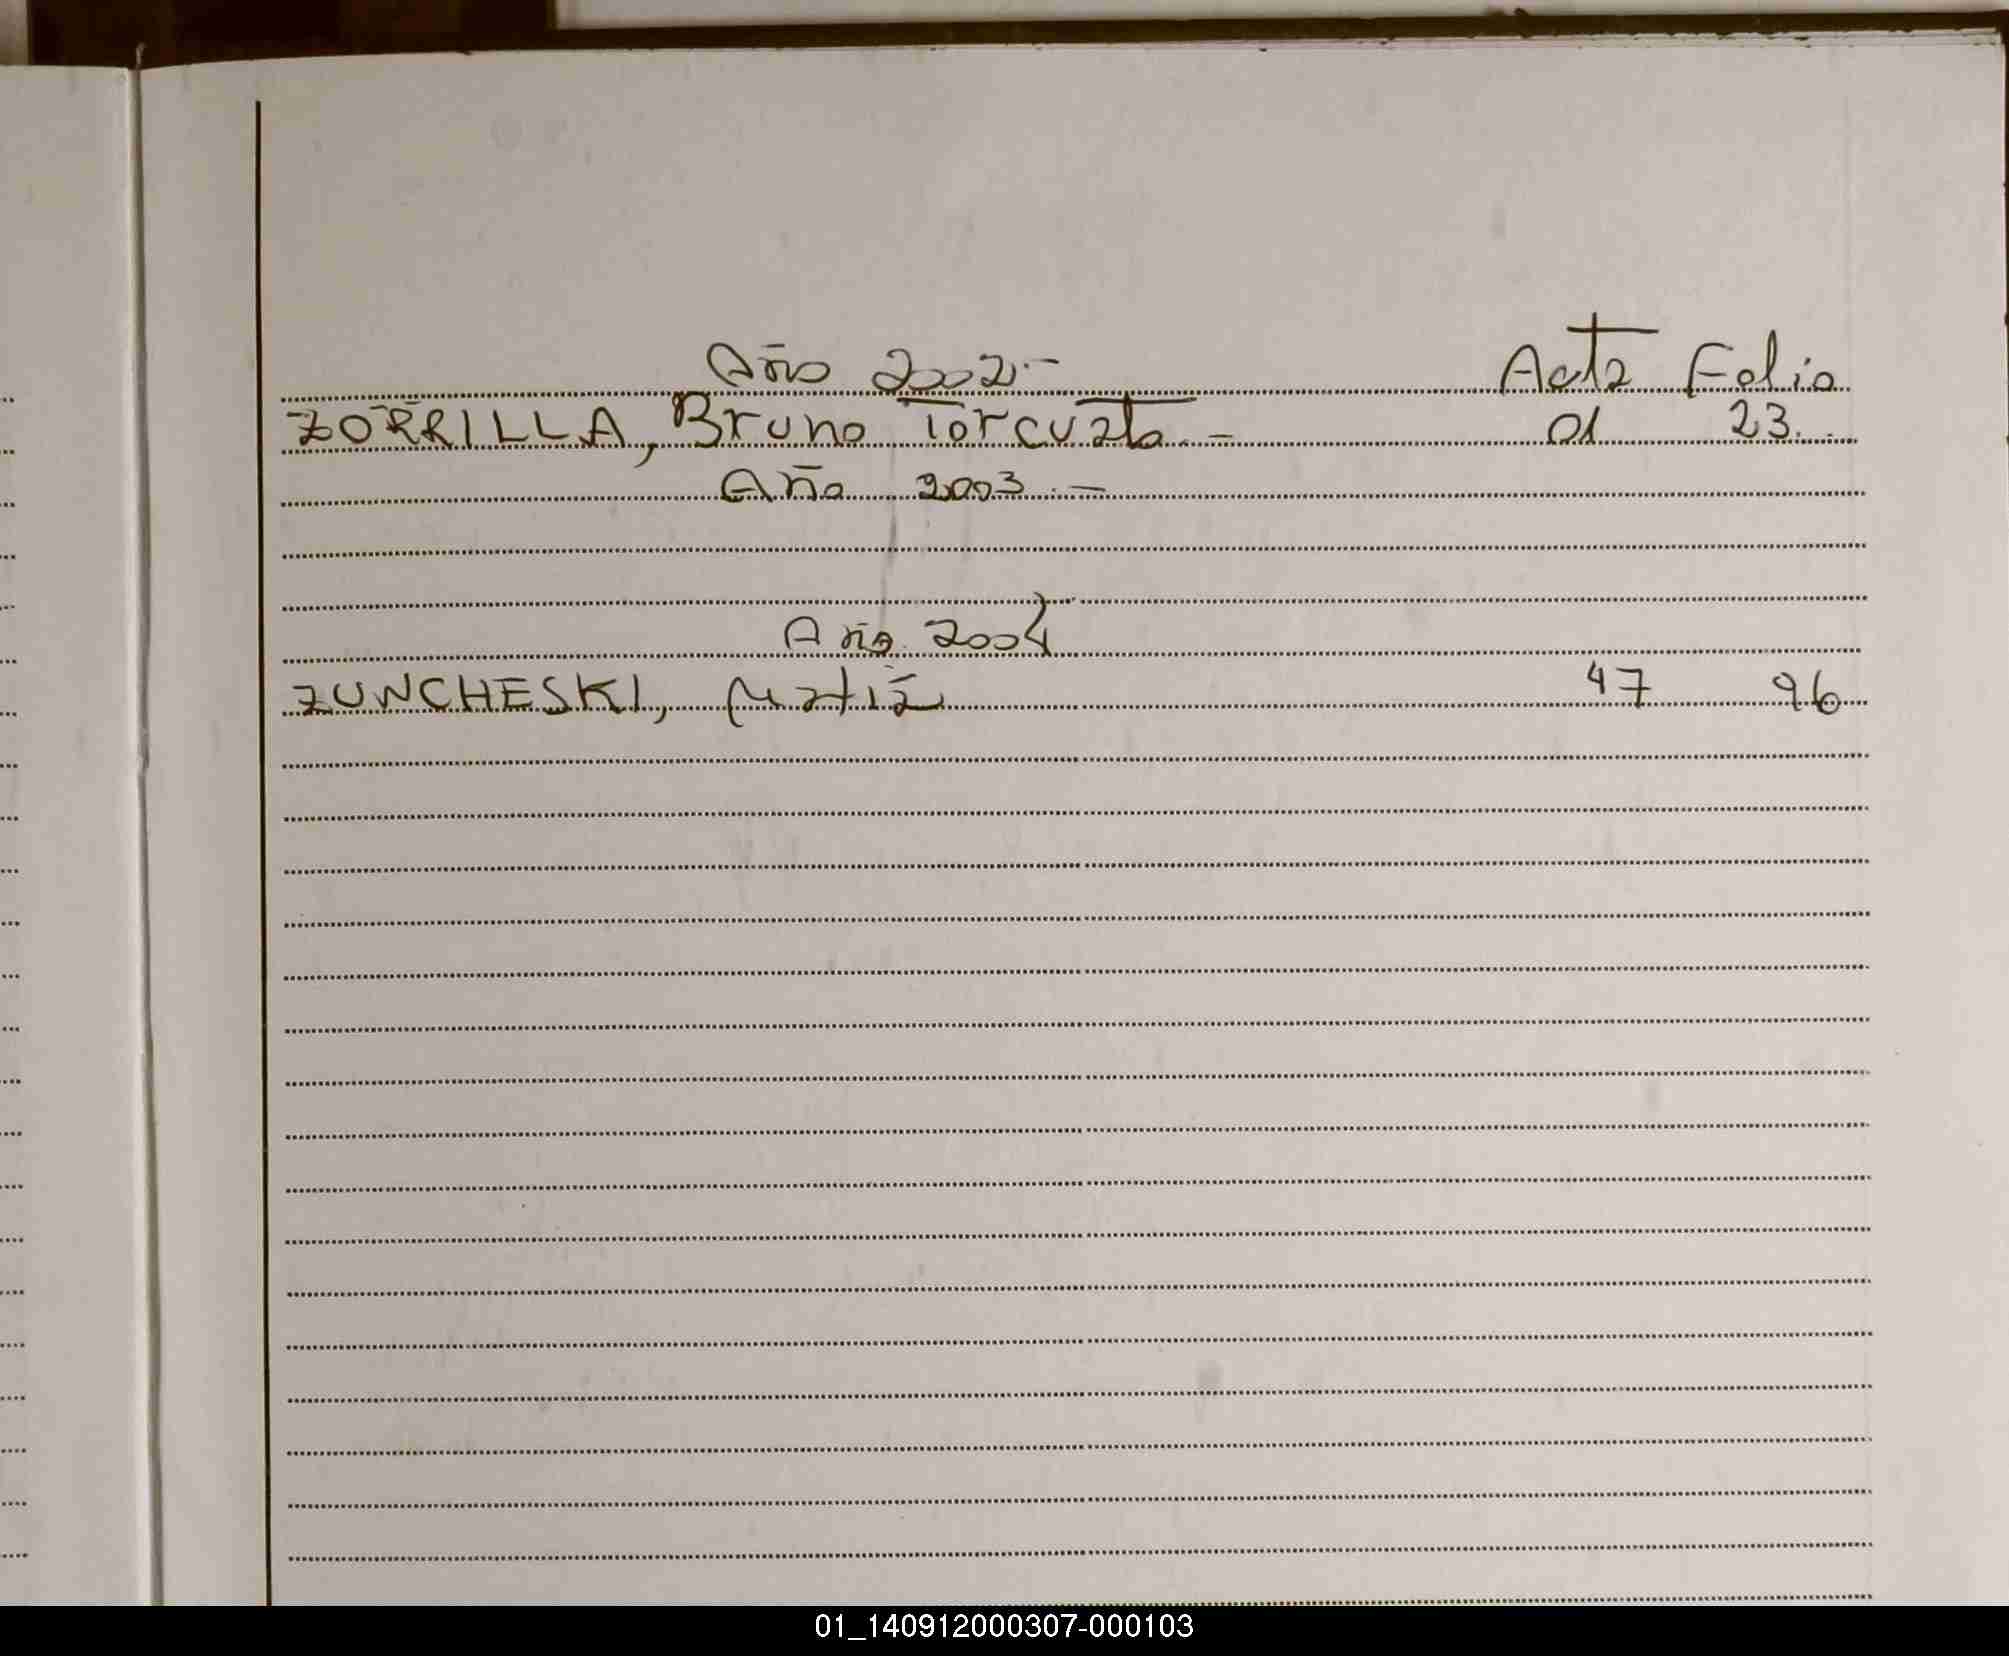 Año 2002.- Acta Folio
ZORRILLA, Bruno Torcuato.- 01 23.
Año 2003.-
Año 2004
ZUNCHESKI, 47 96
01_140912000307-000103